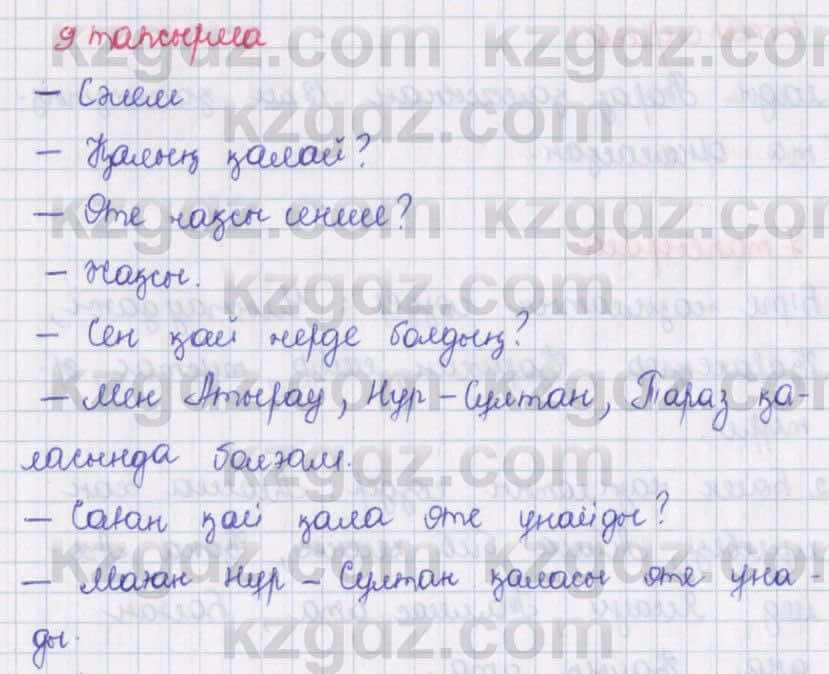 9 тапсырма
– Сәлем
– Қалың қалай?
– Өте жақсы сенше?
– Жақсы.
– Сен қай жерде болдың?
– Мен Атырау, Нұр – Сұлтан, Тараз қа-
ласында болғам.
– Саған қай қала өте ұнайды?
– Маған Нұр – Сұлтан қаласы өте ұна-
ды.
kzgdz.com